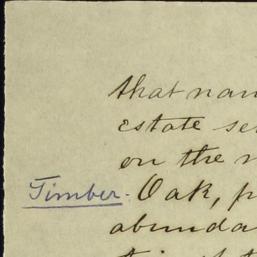 that nam
estate se
on the
Timber. Oak, p
abunda